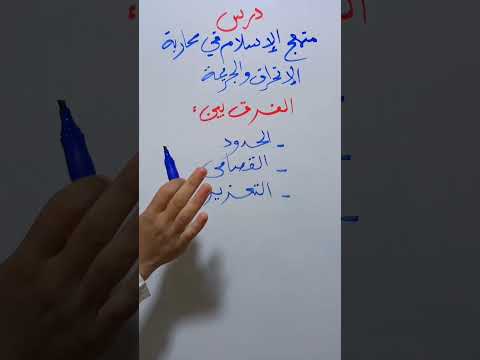 درس
منهج الإسلام في محاربة
الإنحراف والجريمة
الفرق بين:
- الحدود
- القصاص
- التعزير